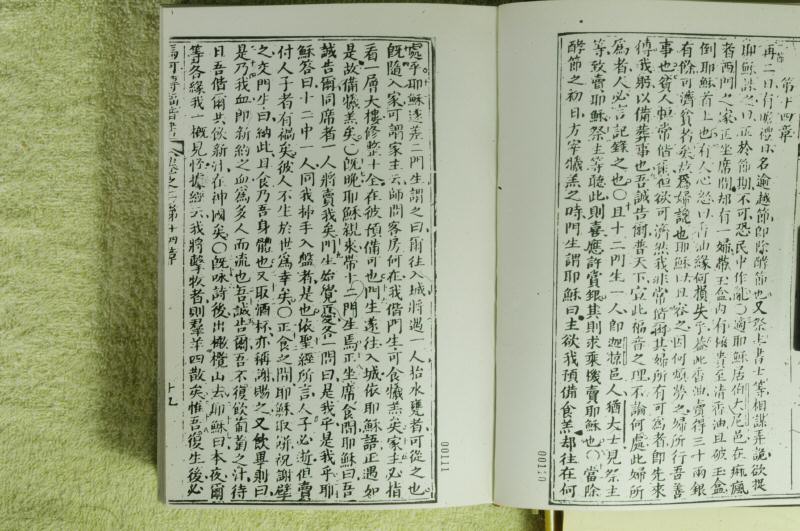 第十四章
再二日有瞻禮日名逾越節即除酵節也又祭主書士等相謀弄詭欲捉
耶穌誅之曰正於節期不可恐民中作亂○適耶穌居伯大尼邑在癩瘋
者西門之家正坐席間却有一婦帶玉盒內有極貴至清香油且破玉盒
倒耶穌首上也有人心忿曰香油緣何損失乎蓋此香油賣得三十兩銀
有餘可濟貧者矣故為婦說也耶穌曰且容之因何煩勞之婦所行吾善
事也貧人恒常偕爾但欲可濟然我非常偕爾其婦所有可為者即先來
傅我躬以備葬事也吾誠告爾普天下宣此福音之理不論何處此婦所
為者人必言記錄之也○且十二門生一人即迦畧邑人猶大士見祭主
等致賣耶穌祭主等聽此則喜應許賞銀其則求乘機賣耶穌也○當除
酵節之初日方宰犧羔之時門生謂耶穌曰主欲我預備食羔却往在何
00110
處乎耶穌遂差二門生謂之曰爾往入城將遇一人抬水甕者可從之也
既隨入家可謂家主云師問客房何在我偕門生可食犧羔矣家主必指
看一層大樓修整十全在彼預備可也門生遂往入城依耶穌語正遇如
是故備犧羔矣○既晚耶穌親來帶十二門生焉正坐席食間耶穌曰吾
誠告爾同席者一人將賣我矣門生始覺憂各一問曰是我乎是我乎耶
穌答曰十二中一人同我抻手入盤者是也依聖經所言人子必逝但賣
付人子者有禍矣彼人不生於世為幸矣○正食之間耶穌取餅祝謝擘
之交門生曰納此且食乃吾身體也又取酒杯亦稱謝賜之又飲畢則曰
是乃我血即新約之血為多人而流也吾誠告爾吾不復飲葡萄之汁待
日吾偕爾共飲新汁在神國矣○既咏詩後出橄欖山去耶穌曰本夜爾
等各緣我一概見怪據經云我將擊牧者則羣羊四散矣惟吾復生後必
馬可傳福音書
卷之二 第十四章
十九
00111